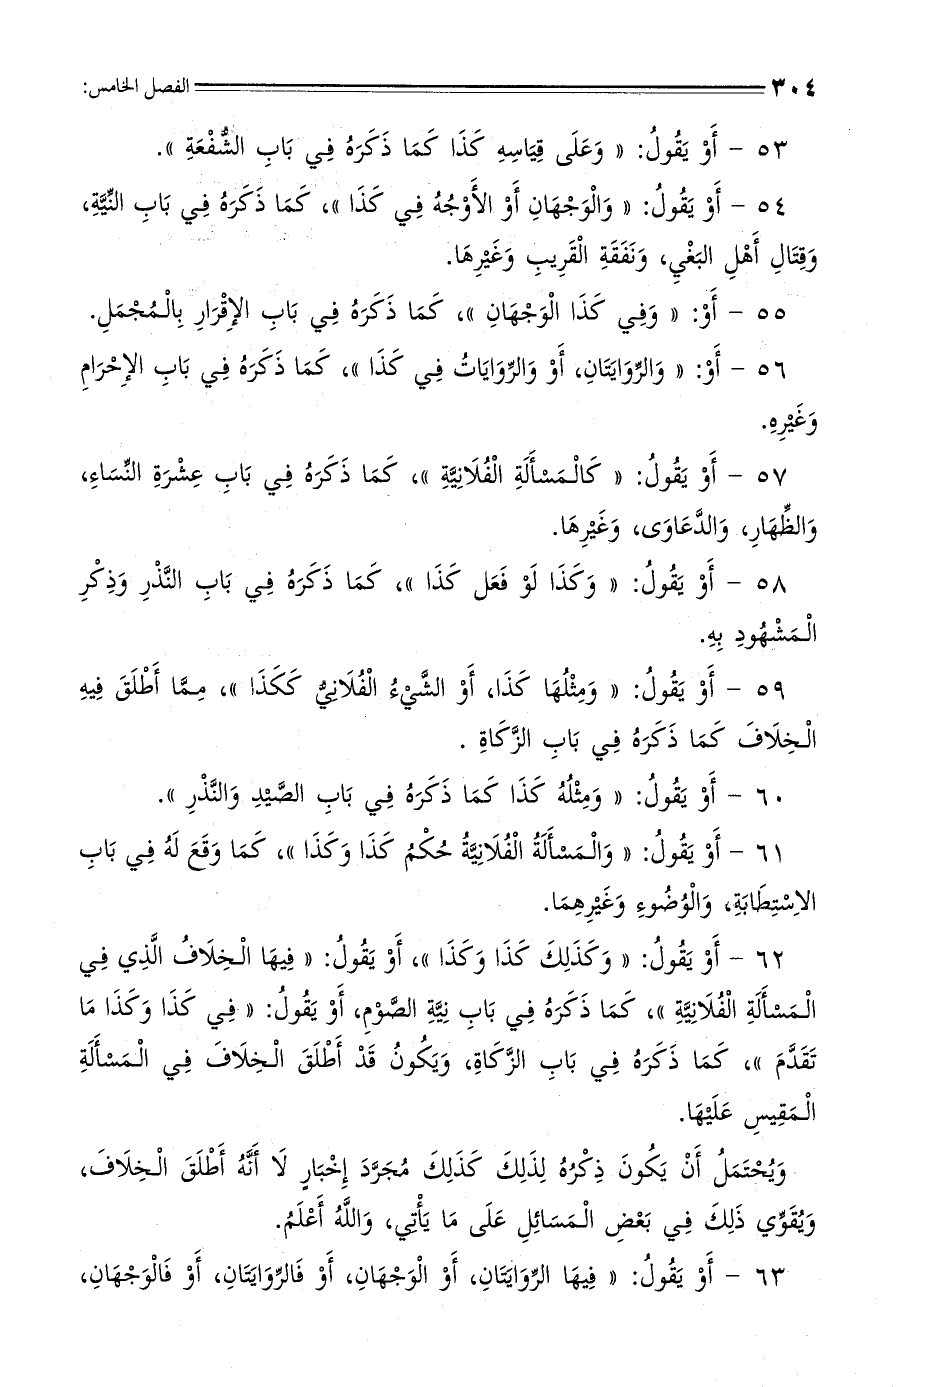 ٣٠٤ الفصل الخامس:
٥٣ - أَوْ يَقُولُ: « وَعَلَى قِيَاسِهِ كَذَا كَمَا ذَكَرَهُ فِي بَابِ الشُّفْعَةِ ».
٥٤ - أَوْ يَقُولُ: « وَالْوَجْهَانِ أَوْ الأَوْجُهُ فِي كَذَا »، كَمَا ذَكَرَهُ فِي بَابِ النِّيَّةِ،
وَقِتَالِ أَهْلِ البَغْيِ، وَنَفَقَةِ الْقَرِيبِ وَغَيْرِهَا.
٥٥ - أَوْ: « وَفِي كَذَا الْوَجْهَانِ »، كَمَا ذَكَرَهُ فِي بَابِ الإِقْرَارِ بِالْمُجْمَلِ.
٥٦ - أَوْ: « وَالرِّوَايَتَانِ، أَوْ وَالرِّوَايَاتُ فِي كَذَا »، كَمَا ذَكَرَهُ فِي بَابِ الإِحْرَامِ
وَغَيْرِهِ.
٥٧ - أَوْ يَقُولُ: « كَالْمَسْأَلَةِ الْفُلَانِيَّةِ »، كَمَا ذَكَرَهُ فِي بَابِ عِشْرَةِ النِّسَاءِ،
وَالظِّهَارِ، وَالدَّعَاوَى، وَغَيْرِهَا.
٥٨ - أَوْ يَقُولُ: « وَكَذَا لَوْ فَعَل كَذَا »، كَمَا ذَكَرَهُ فِي بَابِ النَّذْرِ وَذِكْرِ
الْمَشْهُودِ بِهِ.
٥٩ - أَوْ يَقُولُ: « وَمِثْلُهَا كَذَا، أَوْ الشَّيْءُ الْفُلَانِيُّ كَكَذَا »، مِمَّا أَطْلَقَ فِيهِ
الْخِلَافَ كَمَا ذَكَرَهُ فِي بَابِ الزَّكَاةِ .
٦٠ - أَوْ يَقُولُ: « وَمِثْلُهُ كَذَا كَمَا ذَكَرَهُ فِي بَابِ الصَّيْدِ وَالنَّذْرِ ».
٦١ - أَوْ يَقُولُ: « وَالْمَسْأَلَةُ الْفُلَانِيَّةُ حُكْمُ كَذَا وَكَذَا »، كَمَا وَقَعَ لَهُ فِي بَابِ
الاِسْتِطَابَةِ، وَالْوُضُوءِ وَغَيْرِهِمَا.
٦٢ - أَوْ يَقُولُ: « وَكَذَلِكَ كَذَا وَكَذَا »، أَوْ يَقُولُ: « فِيهَا الْخِلَافُ الَّذِي فِي
الْمَسْأَلَةِ الْفُلَانِيَّةِ »، كَمَا ذَكَرَهُ فِي بَابِ نِيَّةِ الصَّوْمِ، أَوْ يَقُولُ: « فِي كَذَا وَكَذَا مَا
تَقَدَّمَ »، كَمَا ذَكَرَهُ فِي بَابِ الزَّكَاةِ، وَيَكُونُ قَدْ أَطْلَقَ الْخِلَافَ فِي الْمَسْأَلَةِ
الْمَقِيسِ عَلَيْهَا.
وَيُحْتَمَلُ أَنْ يَكُونَ ذِكْرُهُ لِذَلِكَ كَذَلِكَ مُجَرَّدَ إِخْبَارٍ لَا أَنَّهُ أَطْلَقَ الْخِلَافَ،
وَيُقَوِّي ذَلِكَ فِي بَعْضِ الْمَسَائِلِ عَلَى مَا يَأْتِي، وَاللَّهُ أَعْلَمُ.
٦٣ - أَوْ يَقُولُ: « فِيهَا الرِّوَايَتَانِ، أَوْ الْوَجْهَانِ، أَوْ فَالرِّوَايَتَانِ، أَوْ فَالْوَجْهَانِ،